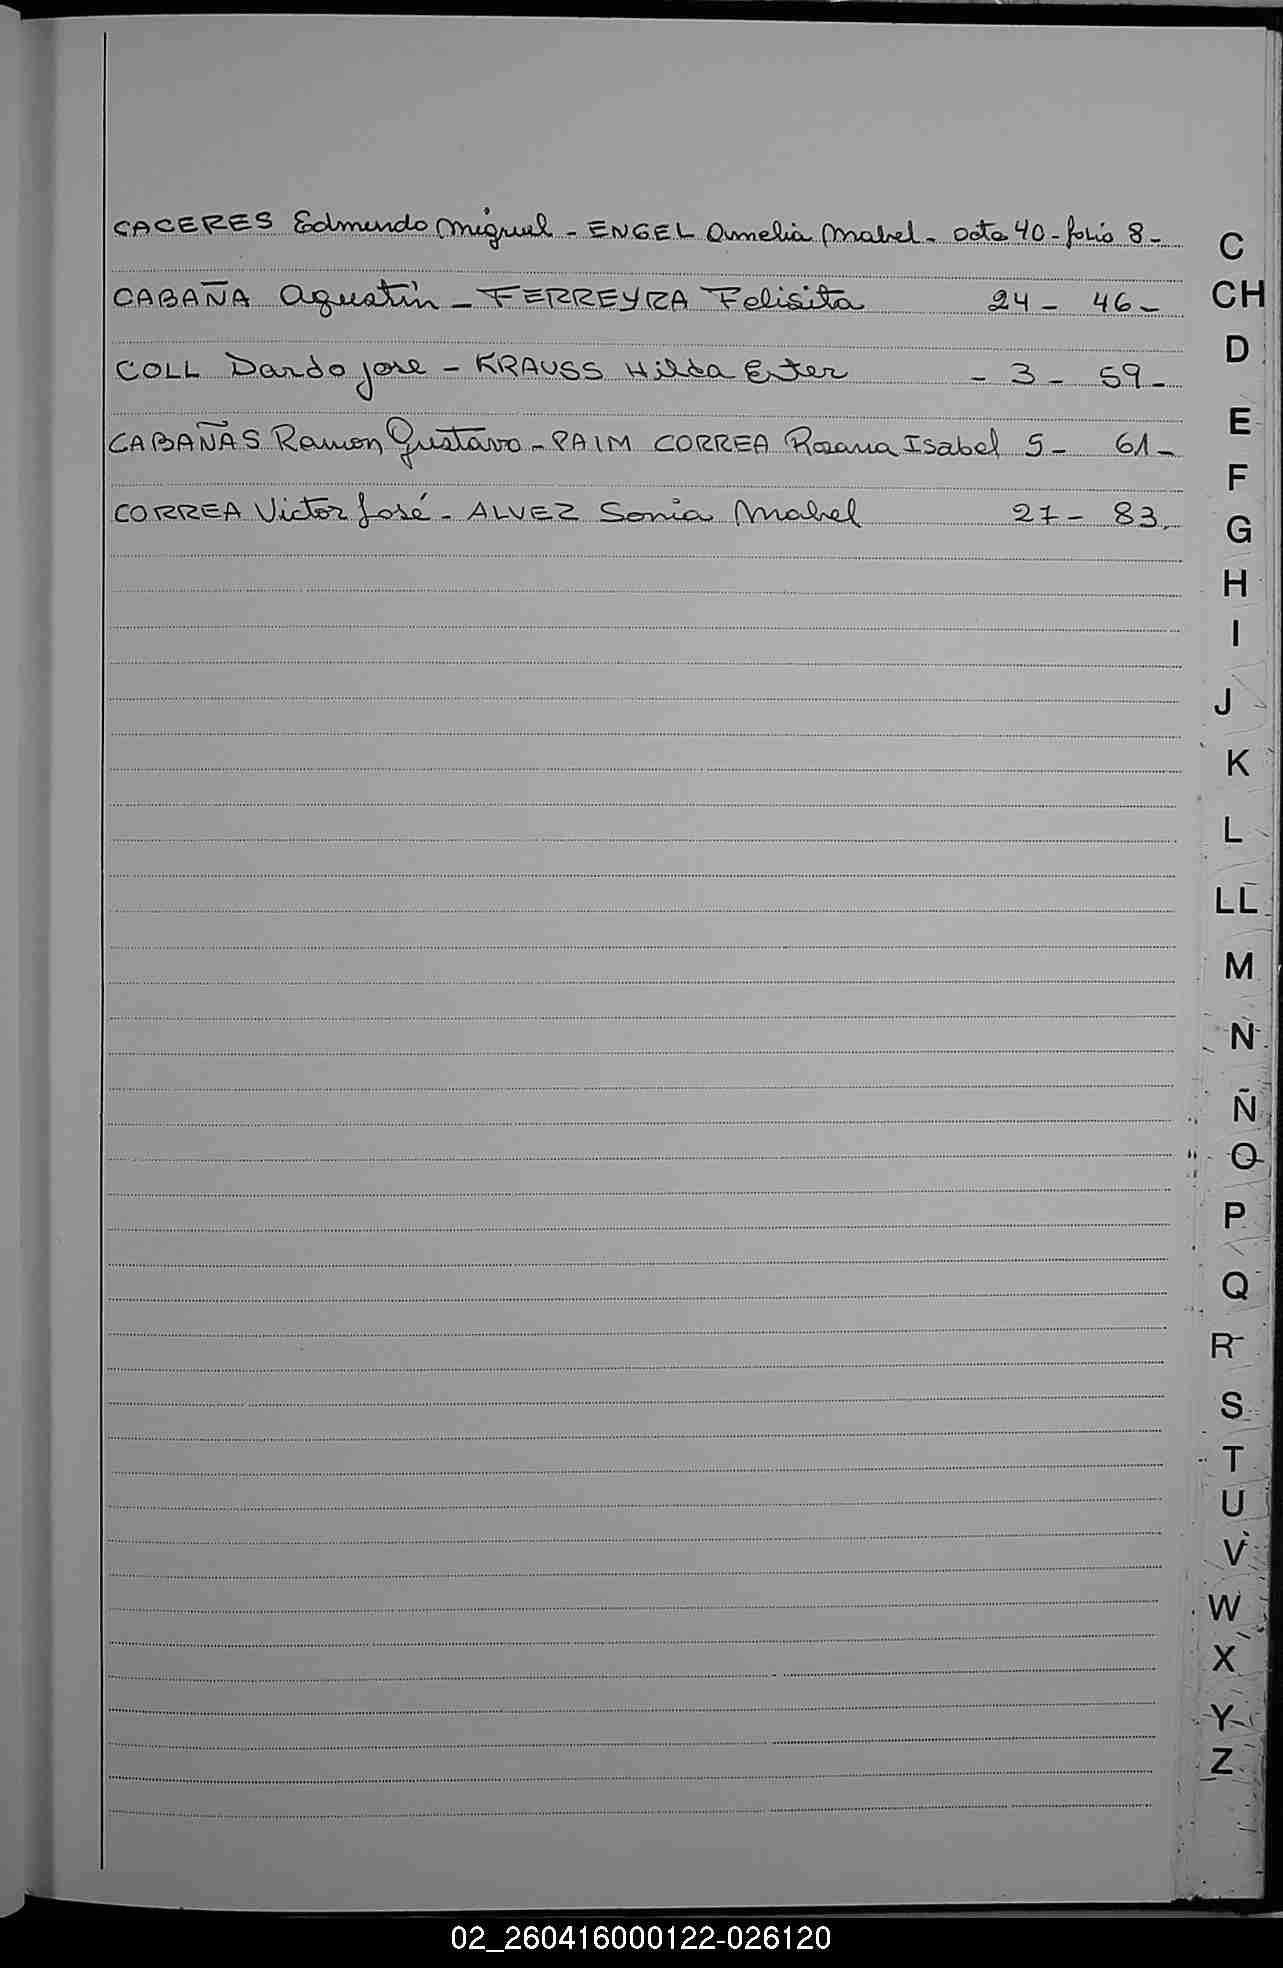 CACERES Edmundo Miguel - ENGEL Amelia Mabel - acta 40 - folio 8 -
CABAÑA Agustín - FERREYRA Felisita 24 - 46 -
COLL Dardo jose - KRAUSS Hilda Ester - 3 - 59 -
CABAÑAS Ramon Gustavo - PAIM CORREA Rosana Isabel 5 - 61 -
CORREA Victor José - ALVEZ Sonia Mabel 27 - 83.
C
CH
D
E
F
G
H
I
J
K
L
LL
M
N
Ñ
O
P
Q
R
S
T
U
V
W
X
Y
Z
02_260416000122-026120